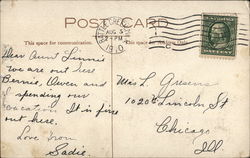 POST CARD
This space for communication.
This space for Address Only.
AUG 5
PM
1910
Dear Aunt Linnie
we are out here
Bernie, Owen and
I spending our
vacation. It is fine
out here.
Love from
Sadie.
Miss L. Greseus
1020 Lincoln St
Chicago
Ill.